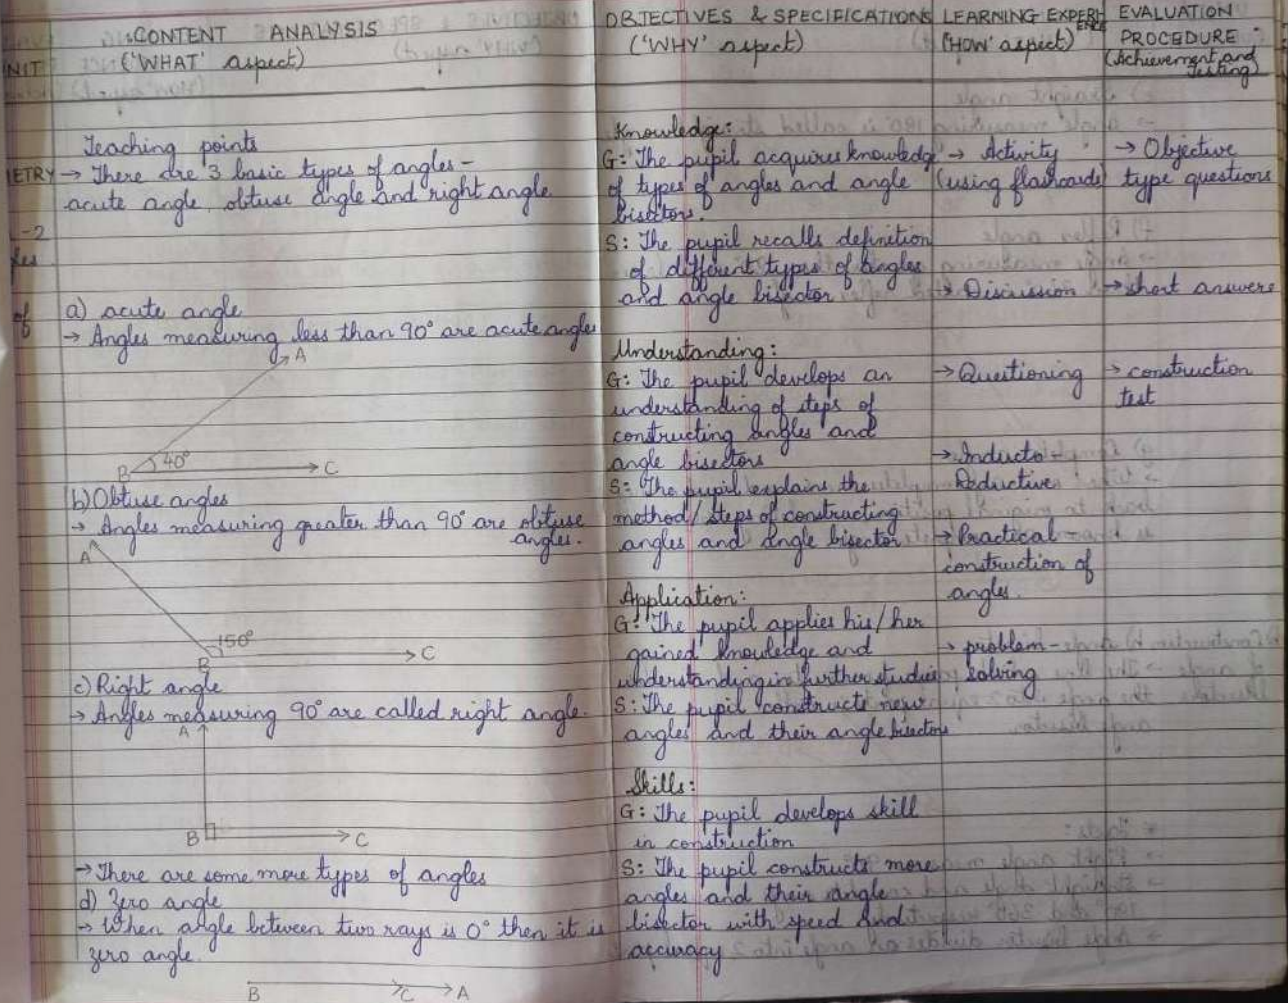 CONTENT ANALYSIS
('WHAT' aspect)
NIT
Teaching points
ETRY → There are 3 basic types of angles -
acute angle, obtuse angle and right angle
-2
of
a) acute angle
→ Angles measuring less than 90° are acute angles
A
40°
B
C
b) Obtuse angles
→ Angles measuring greater than 90° are obtuse
angles.
A
150°
B
C
c) Right angle
→ Angles measuring 90° are called right angle.
A
B
C
→ There are some more types of angles
d) Zero angle
→ When angle between two rays is 0° then it is
zero angle.
B C A
OBJECTIVES & SPECIFICATIONS
('WHY' aspect)
Knowledge:
G: The pupil acquires knowledge
of types of angles and angle
bisectors.
S: The pupil recalls definition
of different types of angles
and angle bisector
Understanding:
G: The pupil develops an
understanding of steps of
constructing angles and
angle bisectors
S: The pupil explains the
method/steps of constructing
angles and angle bisector
Application:
G: The pupil applies his/her
gained knowledge and
understanding in further studies
S: The pupil constructs new
angles and their angle bisectors
Skills:
G: The pupil develops skill
in construction
S: The pupil constructs more
angles and their angle
bisector with speed and
accuracy
LEARNING EXPERIENCE
('HOW' aspect)
→ Activity
(using flashcards)
→ Discussion
→ Questioning
→ Inducto-
Deductive
→ Practical
construction of
angles.
→ problem-
solving
EVALUATION
PROCEDURE
(Achievement and
Testing)
→ Objective
type questions
→ short answers
→ construction
test